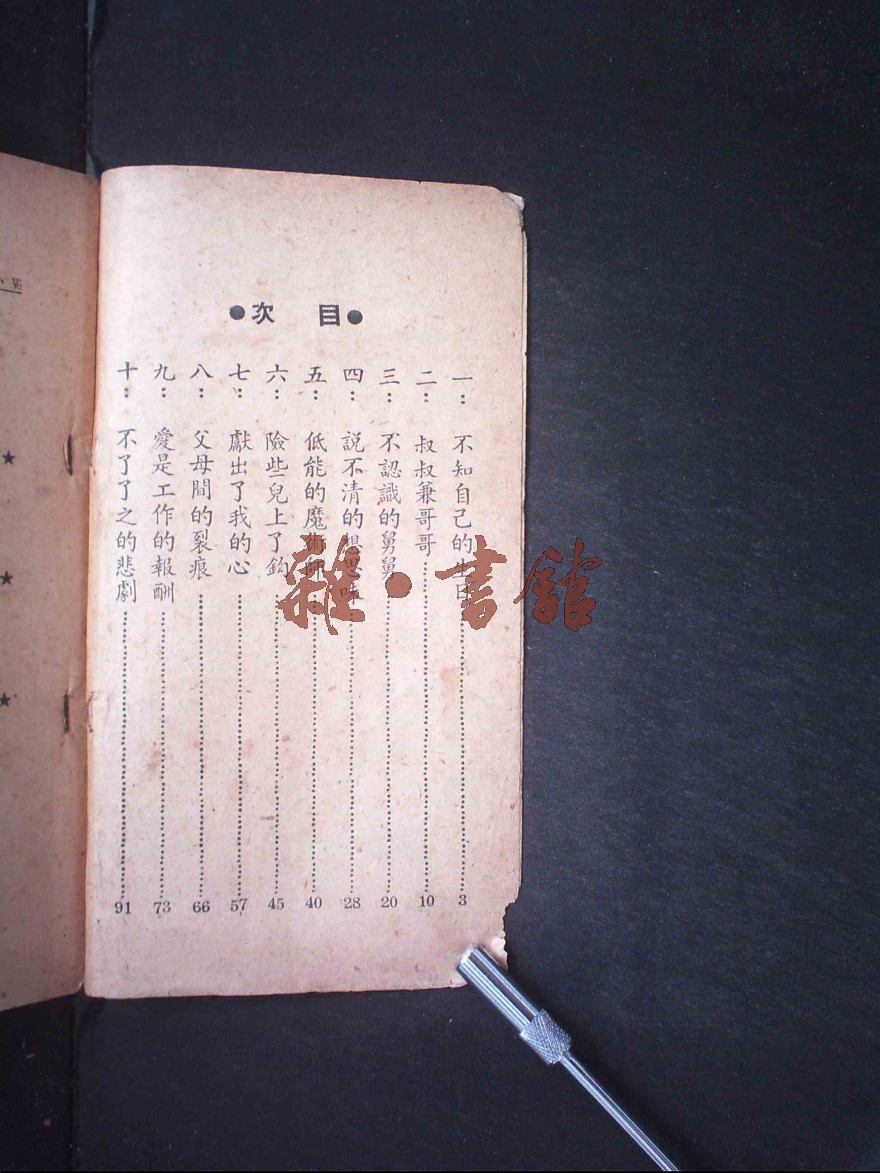 ●目 次●
一：不知自己的生日……3
二：叔叔兼哥哥……10
三：不認識的舅舅……20
四：說不清的想思味……28
五：低能的魔術師……40
六：險些兒上了鈎……45
七：獻出了我的心……57
八：父母間的裂痕……66
九：愛是工作的報酬……73
十：不了了之的悲劇……91
雜・書館